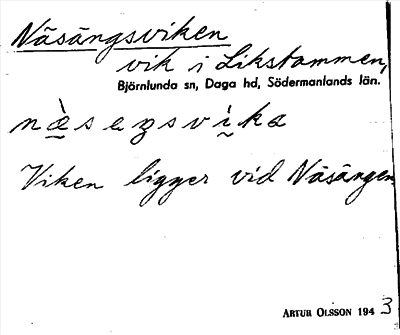 Näsängsviken
vik i Likstammen,
Björnlunda sn, Daga hd, Södermanlands län.
næ̀seŋsvika
Viken ligger vid Näsängen
ARTUR OLSSON 1943